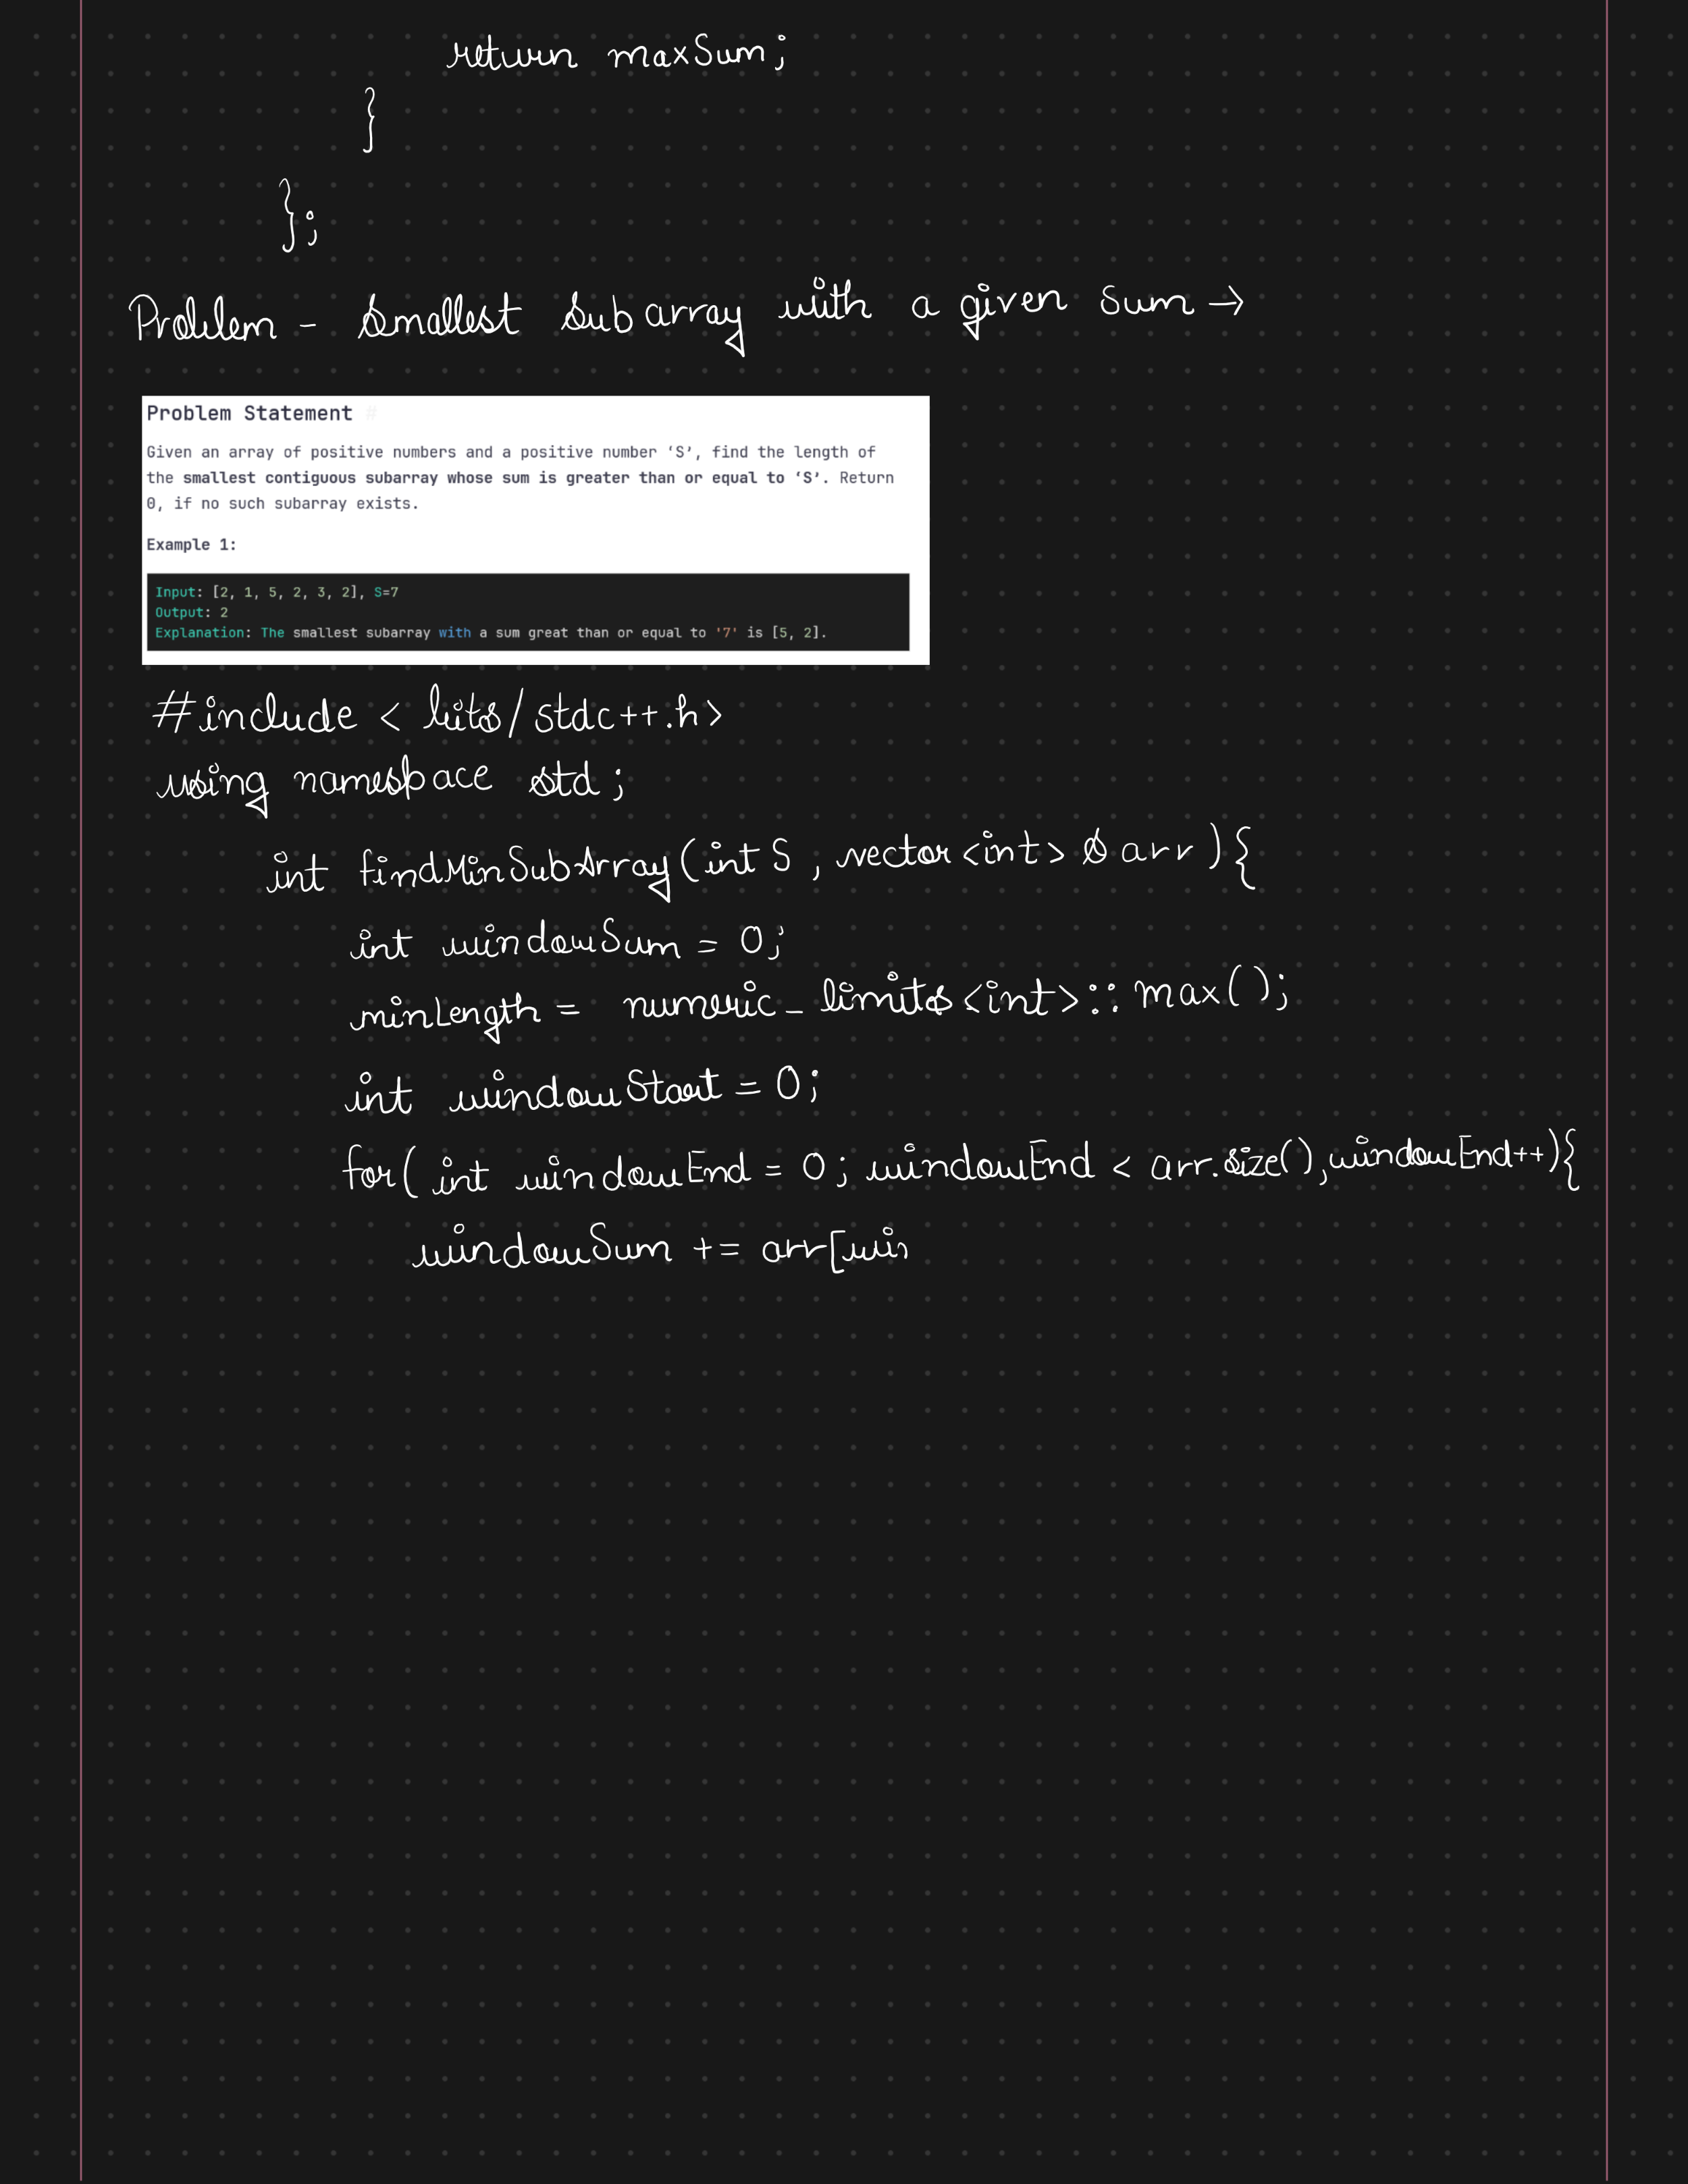 return maxSum;
}
};
Problem - Smallest Subarray with a given Sum →
Problem Statement #
Given an array of positive numbers and a positive number ‘S’, find the length of
the smallest contiguous subarray whose sum is greater than or equal to ‘S’. Return
0, if no such subarray exists.
Example 1:
Input: [2, 1, 5, 2, 3, 2], S=7
Output: 2
Explanation: The smallest subarray with a sum great than or equal to '7' is [5, 2].
#include < bits/stdc++.h>
using namespace std;
int findMinSubArray(int S, vector<int> & arr){
int windowSum = 0;
minLength = numeric_limits<int>::max();
int windowStart = 0;
for( int windowEnd = 0; windowEnd < arr.size(),windowEnd++){
windowSum += arr[win